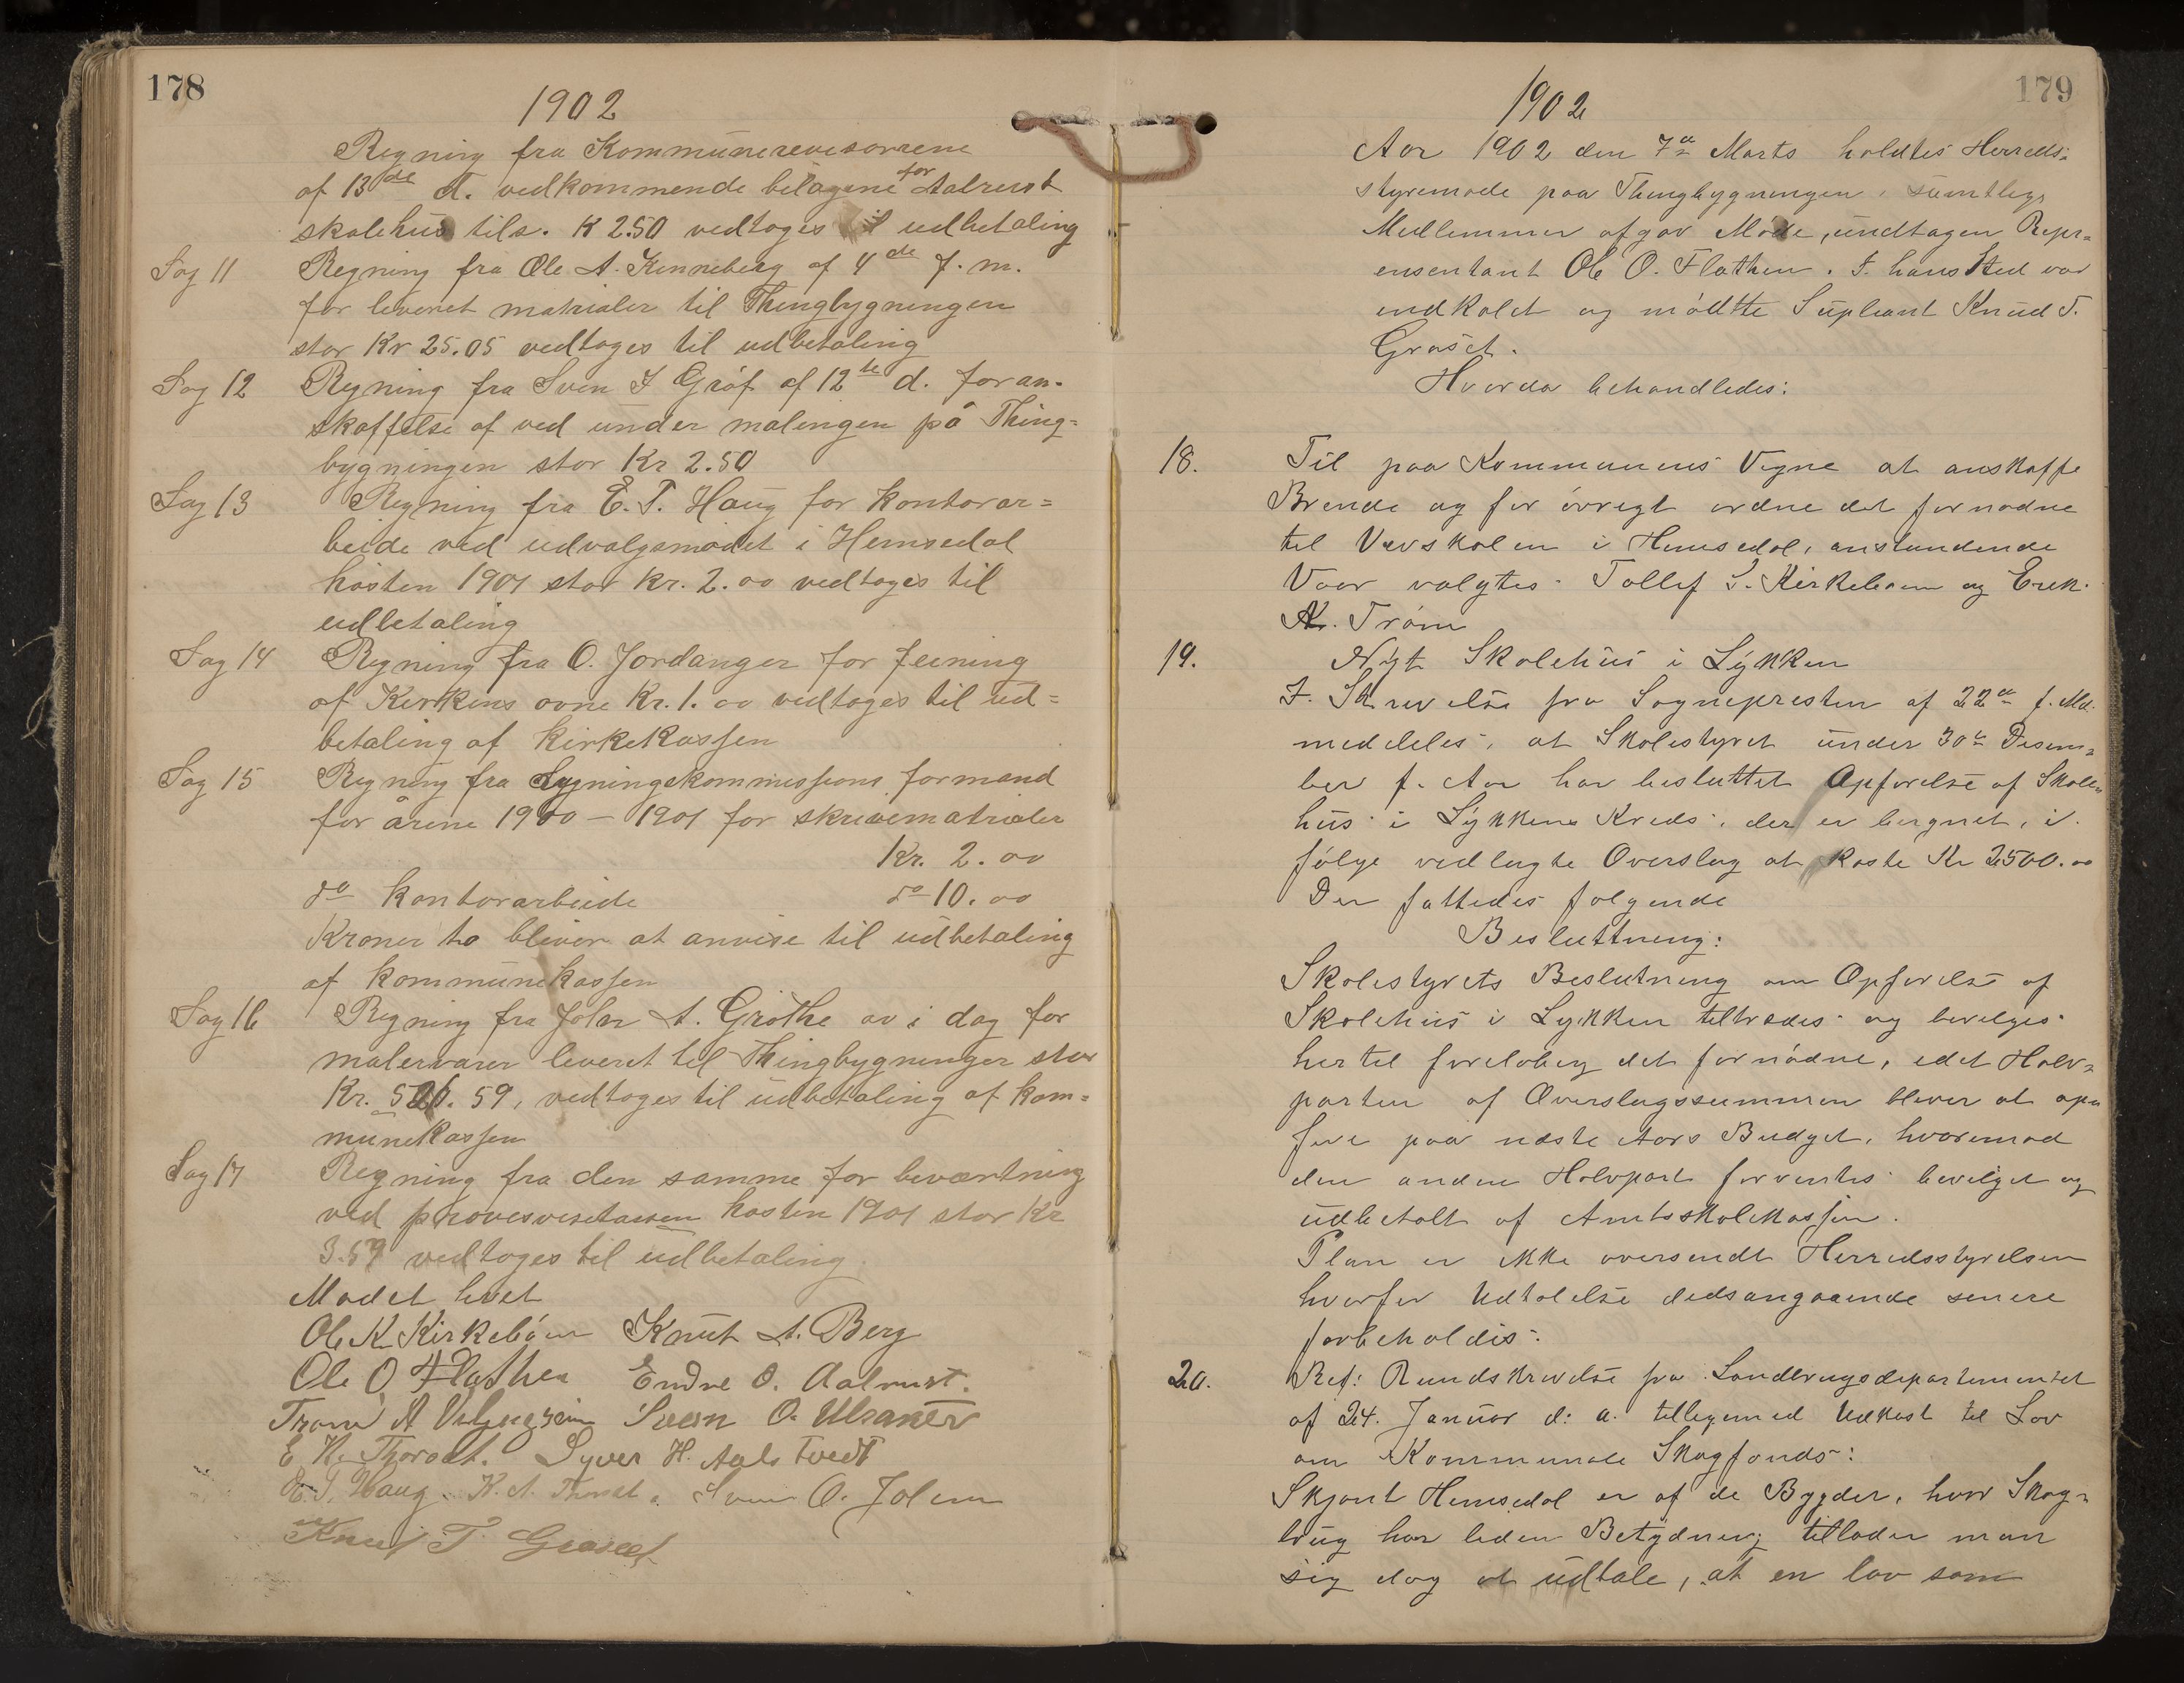 178
1902
Regning fra Kommunerevisorerne
af 13de d. vedkommende bilagene for Aalrust
skolehus tils. K 2.50 vedtoges til udbetaling
Sag 11 Regning fra Ole A. Kinneberg af 4de f. m.
for leveret matrialer til Thingbygningen
stor Kr 25.05 vedtoges til udbetaling
Sag 12 Regning fra Sven T Gróf af 12te d. for an-
skaffelse af ved under malingen på Thing=
bygningen stor Kr 2.50
Sag 13 Regning fra E. T. Haug for kontorar=
beide ved udvalgsmødet i Hemsedal
hósten 1901 stor Kr. 2.00 vedtoges til
udbetaling
Sag 14 Regning fra O. Jordanger for feining
af Kirkens ovne Kr. 1.00 vedtoges til ud=
betaling af kirkekassen
Sag 15 Regning fra Ligningskommissions formand
for årene 1900 – 1901 for skrivematrialer
Kr. 2.00
do kontorarbeide do 10.00
Kroner to bliver at anvise til udbetaling
af kommunekassen
Sag 16 Regning fra John A. Gróthe av i dag for
malervarer leveret til Thingbygninger stor
Kr. 59, vedtoges til udbetaling af kom=
munekassen
Sag 17 Regning fra den samme for beværtning
ved hósten 1901 stor Kr
3.59 vedtoges til udbetaling.
Mødet hevet
Ole K Kirkebóen Knut A. Berg
Ole O. Flathen Endre O. Aalrust.
Svein O. Ulsaker
E N. Thorset. Syver H. Aalstvedt
E. T. Haug. Sven O. Jolem
Knud T. Graset
179
1902
Aar 1902 den 7de Marts holdtes Herreds=
styremøde paa Thingbygningen, samtlige
Medlemmer afgav Móde, undtagen Repr=
ensentant Ole O. Flathen. I hans Sted var
indkalet og módtte Supleant Knud T.
Graset.
Hvorda behandledes:
18. Til paa Kommunens Vegne at anskaffe
Brende og for óvregt ordne det fornødne
til Vævskolen i Hemsedal, anstundende
Vaar valgtes Tollef S. Kirkeboen og Erek.
Kr. Tróim
19. Nyt Skolehus i Lykken
I. Skrivelse fra Sognepresten af 22de f. Md.
meddeles, at Skolestyret under 30te Desem=
ber f. Aar har besluttet Opførelse af Skole=
hus i Lykkens Kreds, der er beregnet, i
følge vedlagte Overslag at koste Kr 2500.00
Der fattedes følgende
Besluttning:
Skolestyrets Beslutning om Opførelse af
Skolehus i Lykken tiltrædes og bevelges
hertil foreløbeg det fornødne, idet Halv=
parten af Overslagssummen blever at op=
føre paa næste Aars Budget, hvoremod
den anden Halvpart forventes bevilget og
udbetalt af Amtsskolekassen.
Plan er ikke oversendt Herredsstyrelsen
hvorfor Udtalelse dedsangaaende senere
forbeholdes.
20. Ref: Rundskrivelse fra Landbrugsdepartementet
af 24. Januar d: a. tilligemed Udkast til Lov
om Kommunale Skogfonds:
Skjønt Hemsedal er af de Bygder, hvor Skog=
brug har leden Betydning tillader man
sig dog at udtale, at en lov som